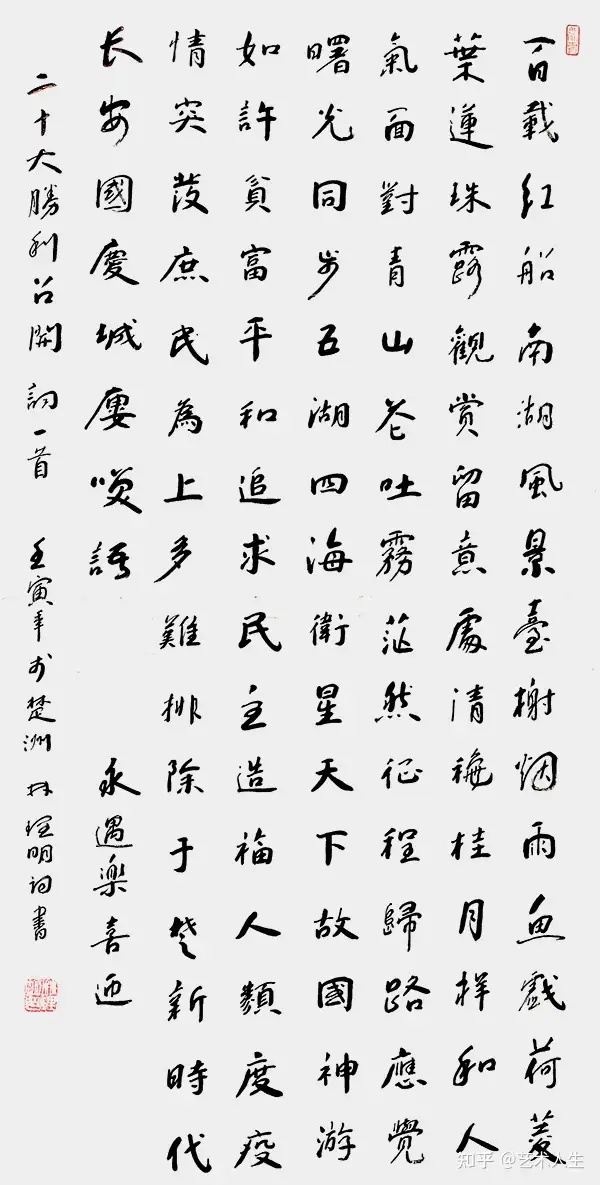 百載紅船南湖風景臺榭烟雨魚戲荷菱
葉蓮珠露觀賞留意處清穐桂月祥和人
氣面對青山花吐霧茫然征程歸路應覺
曙光同步五湖四海衛星天下故國神游
如許貧富平和追求民主造福人類度疫
情突發庶民為上多難排除于楚新時代
长安國慶城廔喚語 永遇樂喜迎
二十大勝利召開詞一首 壬寅年於楚洲 林明词書
知乎 @艺术人生